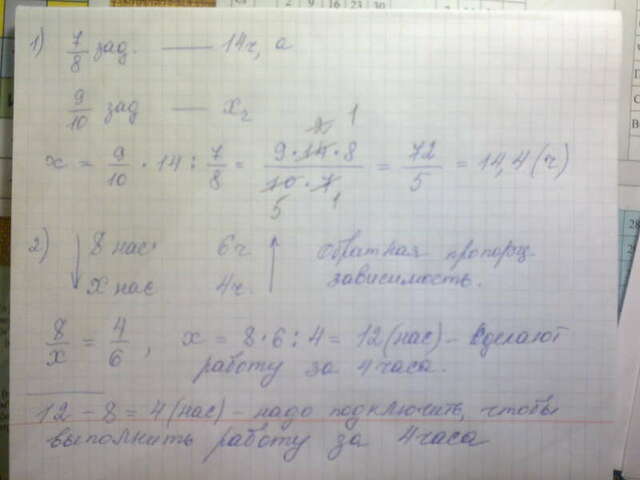 1) 7/8 зад. — 14ч, а
9/10 зад — x ч
x = 9/10 · 14 : 7/8 = 9·14·8/10·7 = 72/5 = 14,4 (ч)
2) ↓ 8 нас 6ч ↑ обратная пропорц.
x нас 4ч. зависимость.
8/x = 4/6, x = 8·6:4 = 12(нас) – сделают
работу за 4 часа.
12 – 8 = 4 (нас) – надо подключить, чтобы
выполнить работу за 4 часа